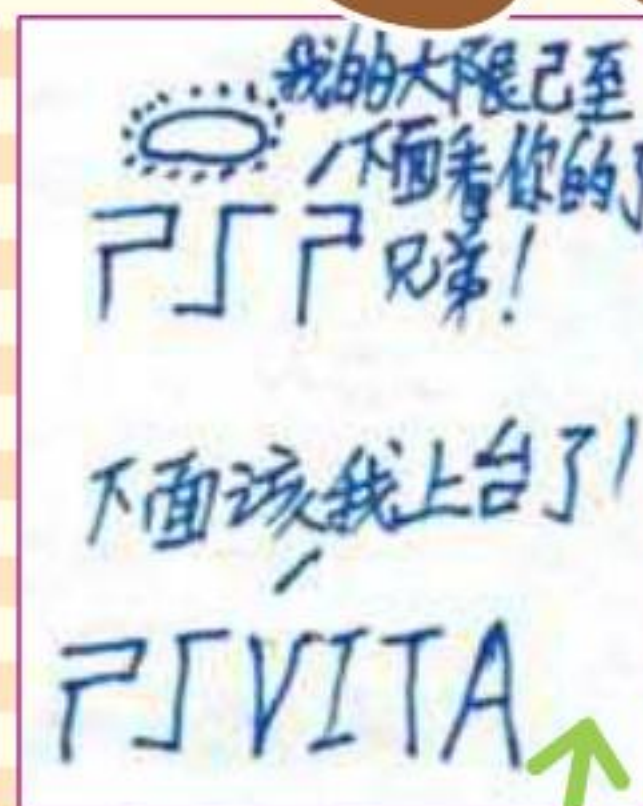 我的大限已至
下面看你的了
兄弟!
PSP
下面该我上台了!
PSVITA